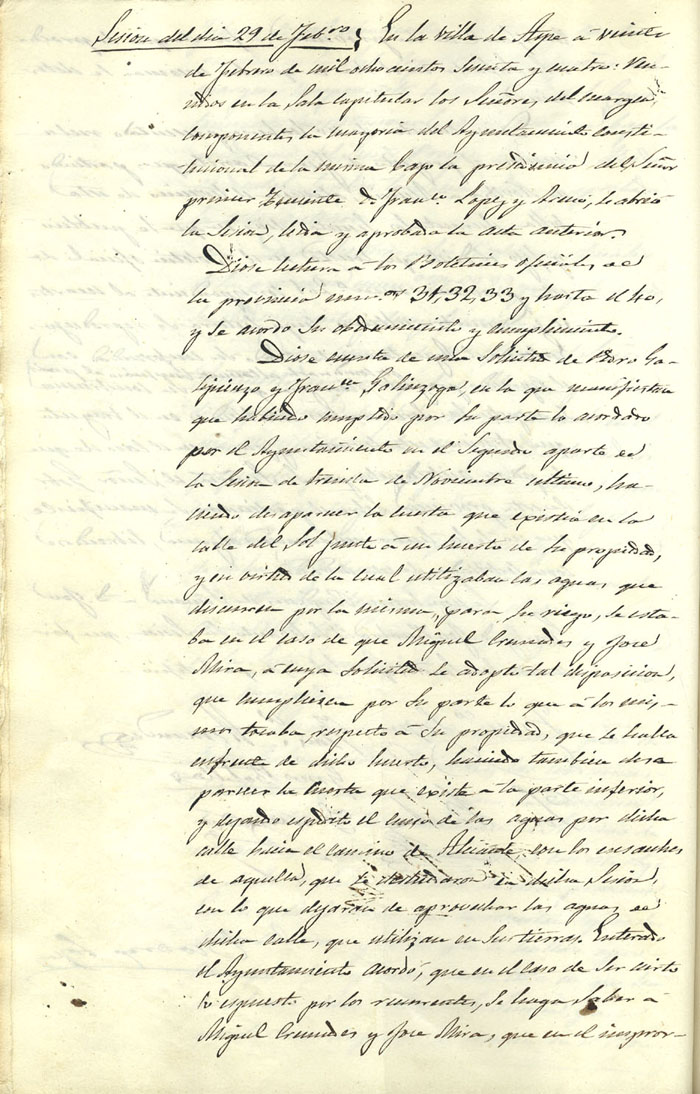 Sesion del dia 29 de Feb.ro } En la villa de Aspe á veinte
de Febrero de mil ochocientos sesenta y cuatro: Reu-
nidos en la Sala capitular los Señores del margen,
componentes la mayoria del Ayuntamiento consti-
tucional de la misma bajo la presidencia del Señor
primer Teniente D. Fran.co Lopez y se abrió
la Sesion, leida y aprobada la acta anterior.
Diose lectura á los Boletines oficiales de
la provincia num.os 31, 32, 33 y hasta el
y se acordo su obedecimiento y cumplimiento.
Diose cuenta de una Solicitud de Pedro Ga-
y Fran.co Galinzoga, en la que manifiestan
que habiendo cumplido por su parte lo acordado
por el Ayuntamiento en el Segundo aparte de
la Sesion de treinta de Noviembre ultimo, ha-
ciendo desaparecer la cuesta que existia en la
calle del Sol junto á un huerto de su propiedad,
y en virtud de la cual utilizaban las aguas que
discurren por la misma, para su riego, se esta-
ba en el caso de que Miguel Cremades y José
Mira, á cuya Solicitud se adopto tal disposicion,
que cumpliesen por su parte lo que á los mis-
mos tocaba, respecto á su propiedad, que se halla
enfrente de dicho huerto, haciendo tambien desa
parecer la cuesta que existe a la parte inferior,
y dejando espedito el curso de las aguas por dicha
calle hacia el camino de Alicante, con los ensanches
de aquella, que se en dicha Sesion,
con lo que dejaran de aprovechar las aguas de
dicha calle, que utilizan en sus tierras. Enterado
el Ayuntamiento acordó, que en el caso de ser cierto
lo espuesto por los recurrentes, se haga saber á
Miguel Cremades y José Mira, que en el impror-